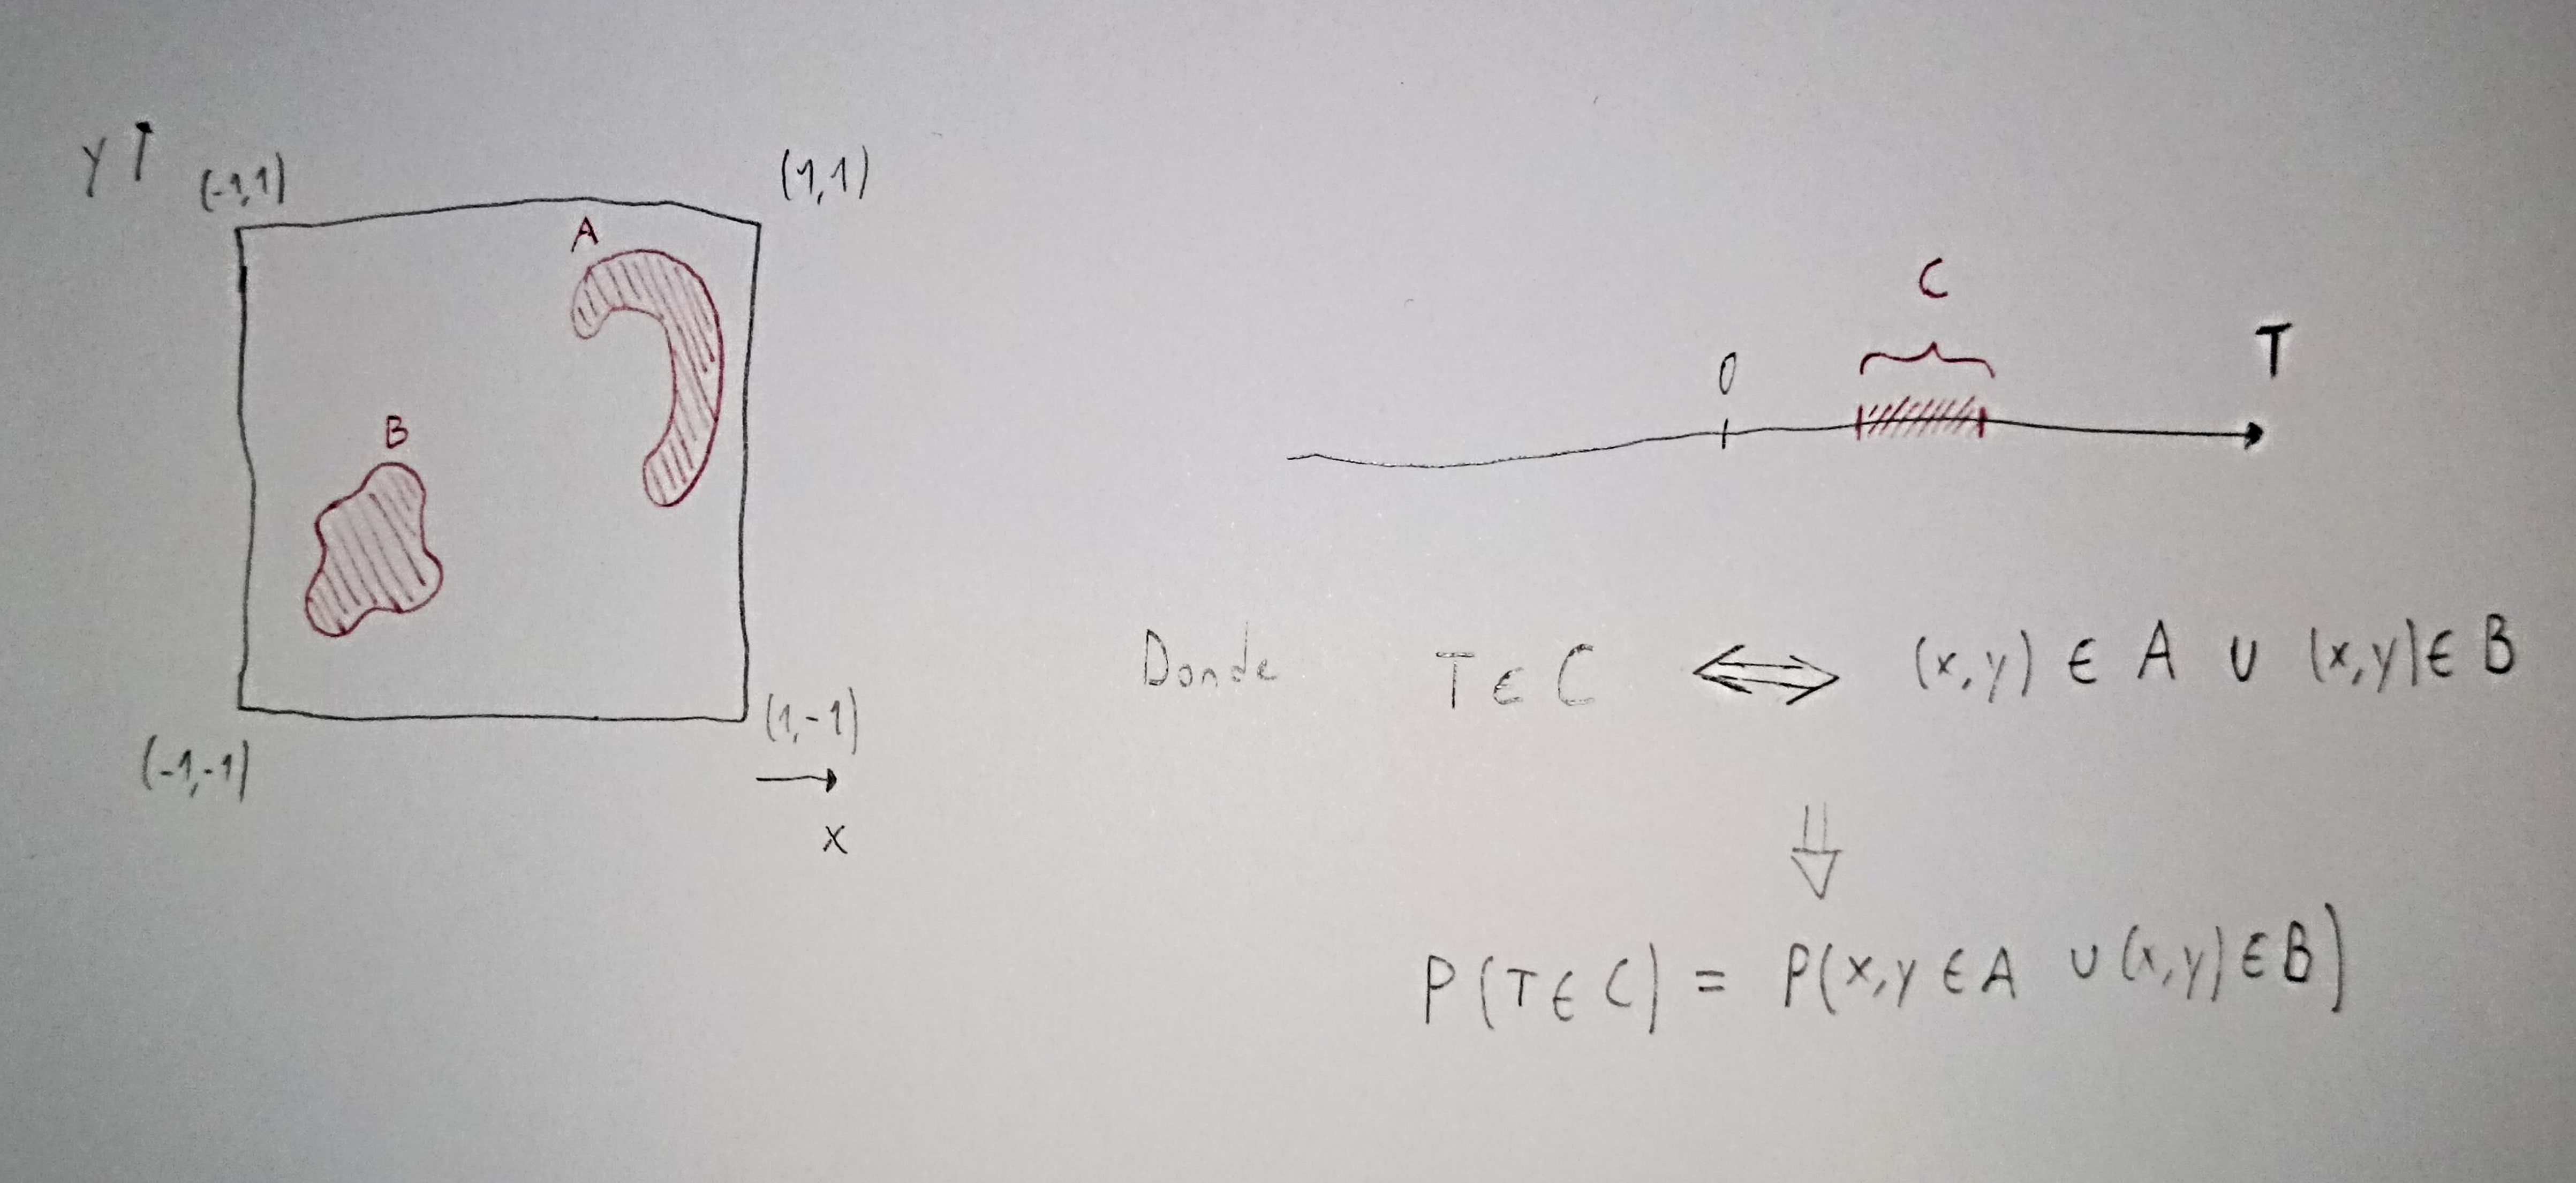 Y
(-1,1)
(1,1)
A
B
(-1,-1)
(1,-1)
X
C
0
T
Donde T ∈ C ⟺ (x,y) ∈ A ∪ (x,y) ∈ B
⇓
P(T ∈ C) = P(x,y ∈ A ∪ (x,y) ∈ B)